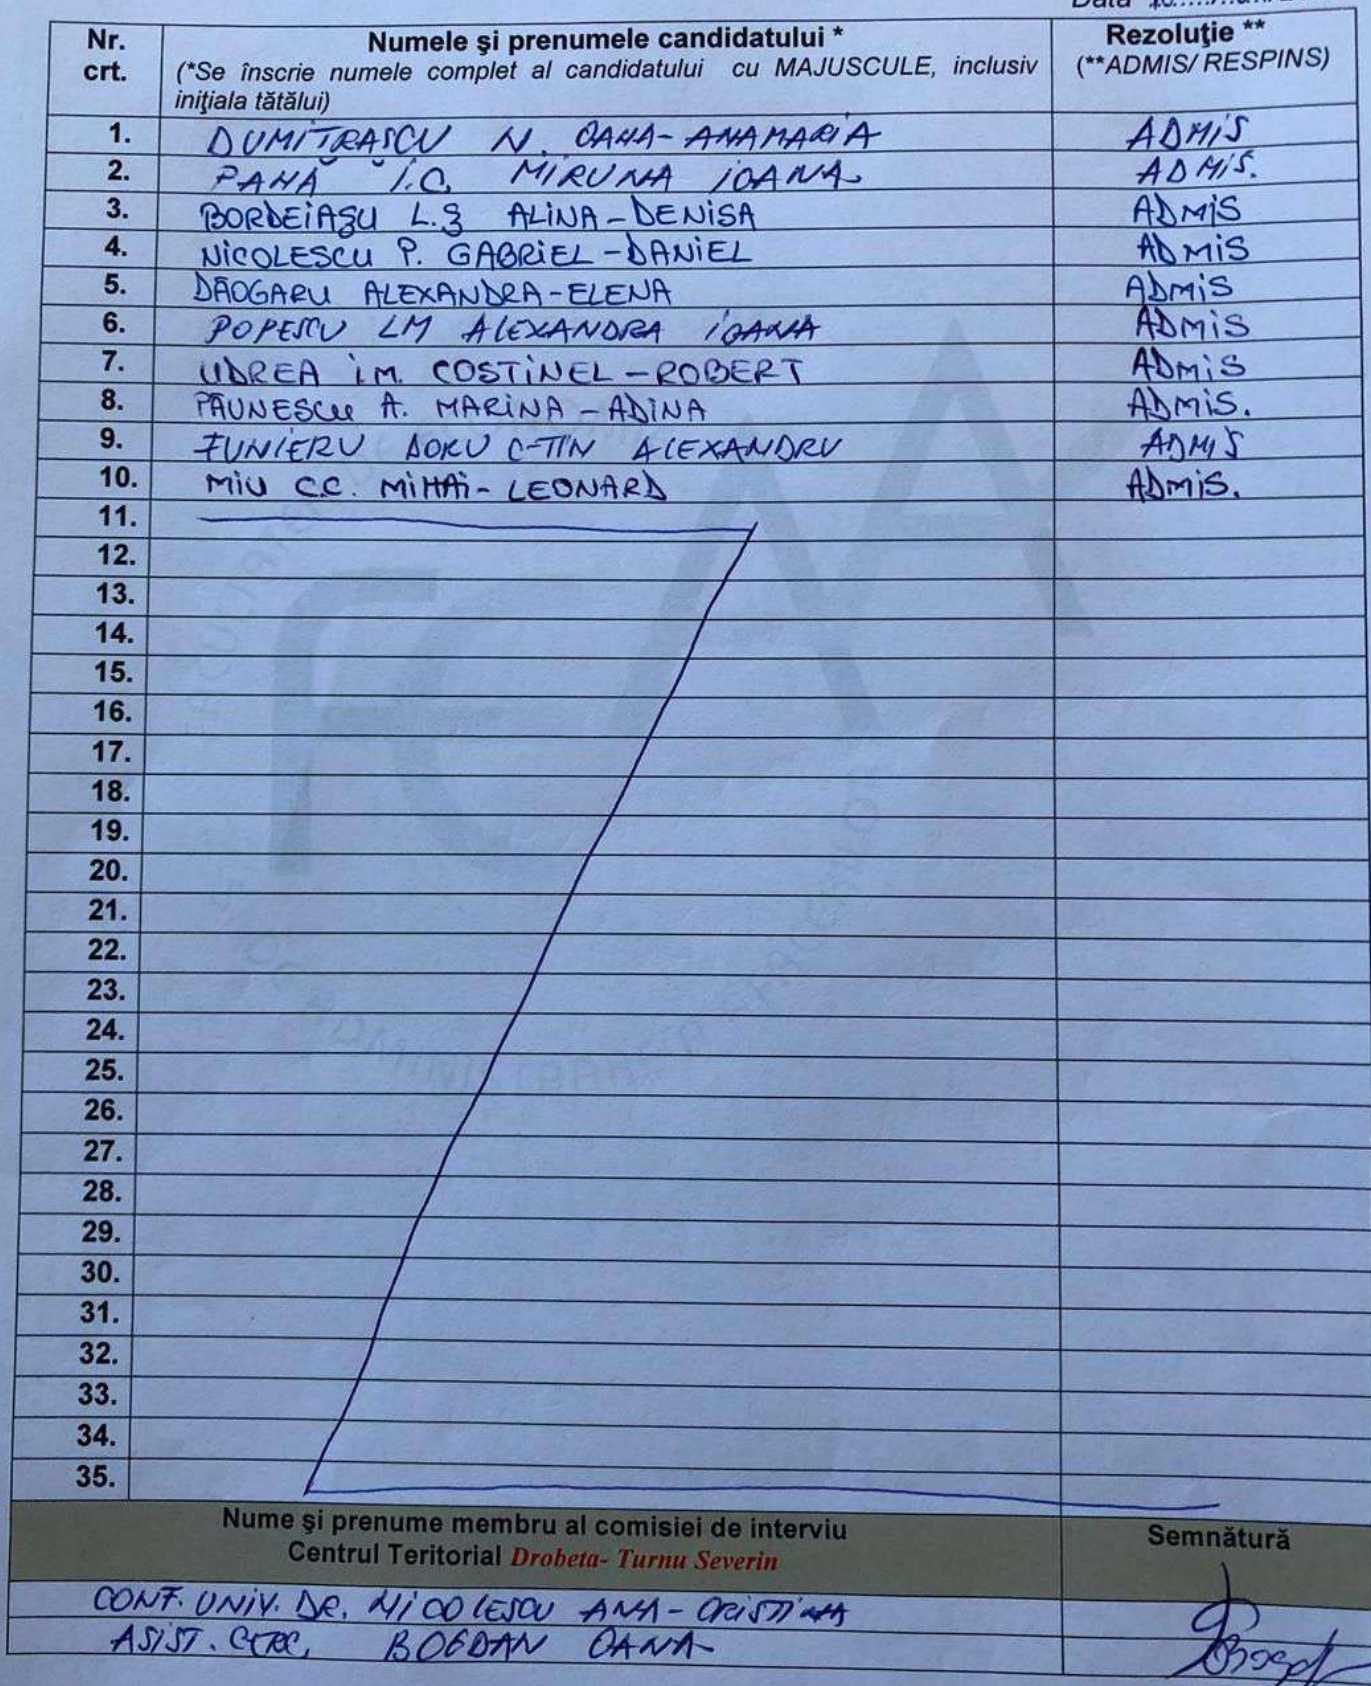 Data
Nr. crt. Numele şi prenumele candidatului * Rezoluţie **
(*Se înscrie numele complet al candidatului cu MAJUSCULE, inclusiv iniţiala tătălui) (**ADMIS/ RESPINS)
1. DUMITRAŞCU N. OANA-ANAMARIA ADMIS
2. PANĂ I.C. MIRUNA IOANA ADMIS.
3. BORDEIAŞU L.Ş ALINA-DENISA ADMIS
4. NICOLESCU P. GABRIEL-DANIEL ADMIS
5. DĂOGARU ALEXANDRA-ELENA ADMIS
6. POPESCU LM ALEXANDRA IOANA ADMIS
7. UDREA I.M. COSTINEL-ROBERT ADMIS
8. PĂUNESCU A. MARINA-ADINA ADMIS.
9. FUNIERU DORU C-TIN ALEXANDRU ADMIS
10. MIU C.C. MIHAI-LEONARD ADMIS.
11.
12.
13.
14.
15.
16.
17.
18.
19.
20.
21.
22.
23.
24.
25.
26.
27.
28.
29.
30.
31.
32.
33.
34.
35.
Nume şi prenume membru al comisiei de interviu Semnătură
Centrul Teritorial Drobeta- Turnu Severin
CONF. UNIV. DR. NICOLESCU ANA-CRISTINA
ASIST. CERC. BOGDAN OANA